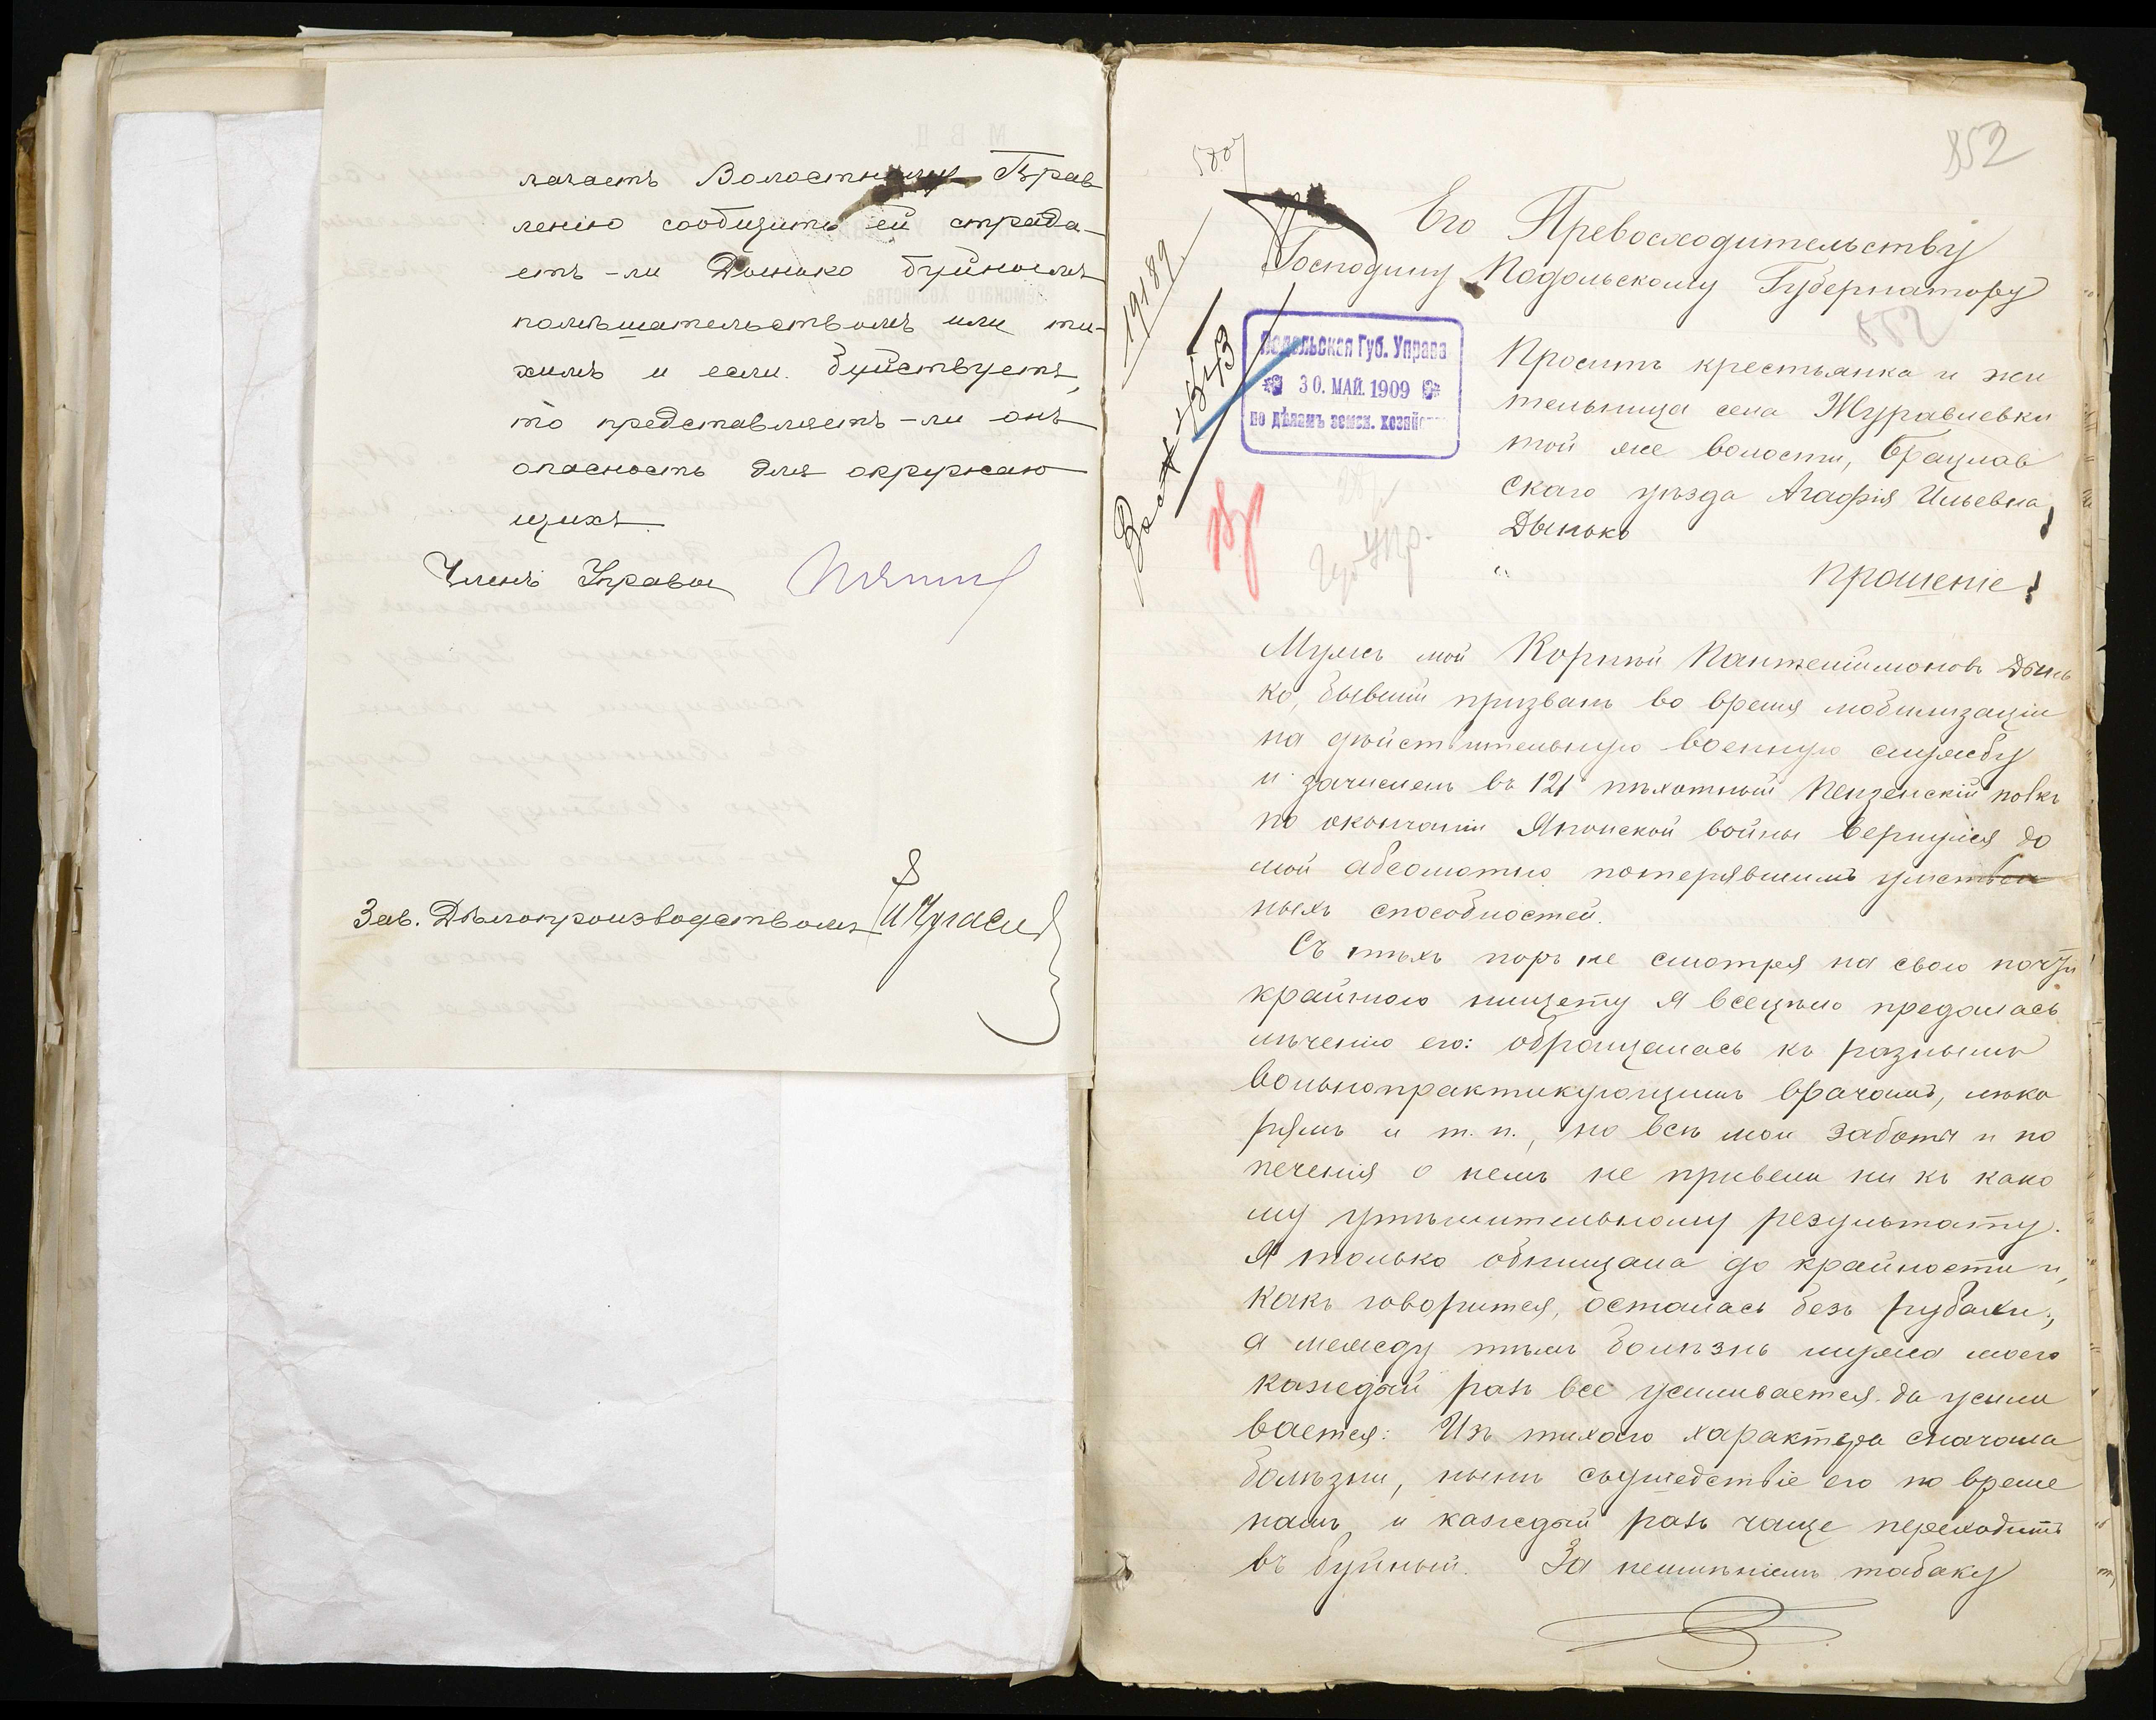 лагаетъ Волостному Прав
ленію сообщить ей страда-
етъ-ли Донько буйнымъ
помѣшательствомъ или ти-
химъ и если буйствуетъ,
то представляетъ-ли онъ
опасность для окружаю
щихъ
Членъ Управы
Зав. Дѣлопроизводствомъ
852
5807
Его Превосходительству
Господину Подольскому Губернатору
19189
552
Подольская Губ. Управа
30. МАЙ. 1909
по дѣламъ земск. хозяйст
Губ Упр.
Проситъ крестьянка и жи
тельница села Журавлевки
той же волости, Брацлав
скаго уѣзда Агафія Ильевна
Дынько
Прошеніе!
Мужъ мой Корній Пантелеймоновъ Дынь
ко, бывшій призванъ во время мобилизаціи
на дѣйствительную военную службу
и зачисленъ въ 121 пѣхотный Пензенскій полкъ
по окончаніи Японской войны вернулся до
мой абсолютно потерявшимъ умствен
ныхъ способностей.
Съ тѣхъ поръ не смотря на свою почти
крайнюю нищету я всецѣло предалась
лѣченію его: обращалась къ разнымъ
вольнопрактикующимъ врачамъ, лѣка
рямъ и т. п., но всѣ мои заботы и по
печенія о немъ не привели ни къ како
му утѣшительному результату.
Я только обнищала до крайности и,
какъ говорится, осталась безъ рубахи;
а между тѣмъ болѣзнь мужа моего
каждый разъ все усиливается да усили
вается: Изъ тихаго характера сначала
болѣзни, нынѣ сумшедствіе его по време
намъ и каждый разъ чаще переходитъ
въ буйный. За неимѣніемъ табаку